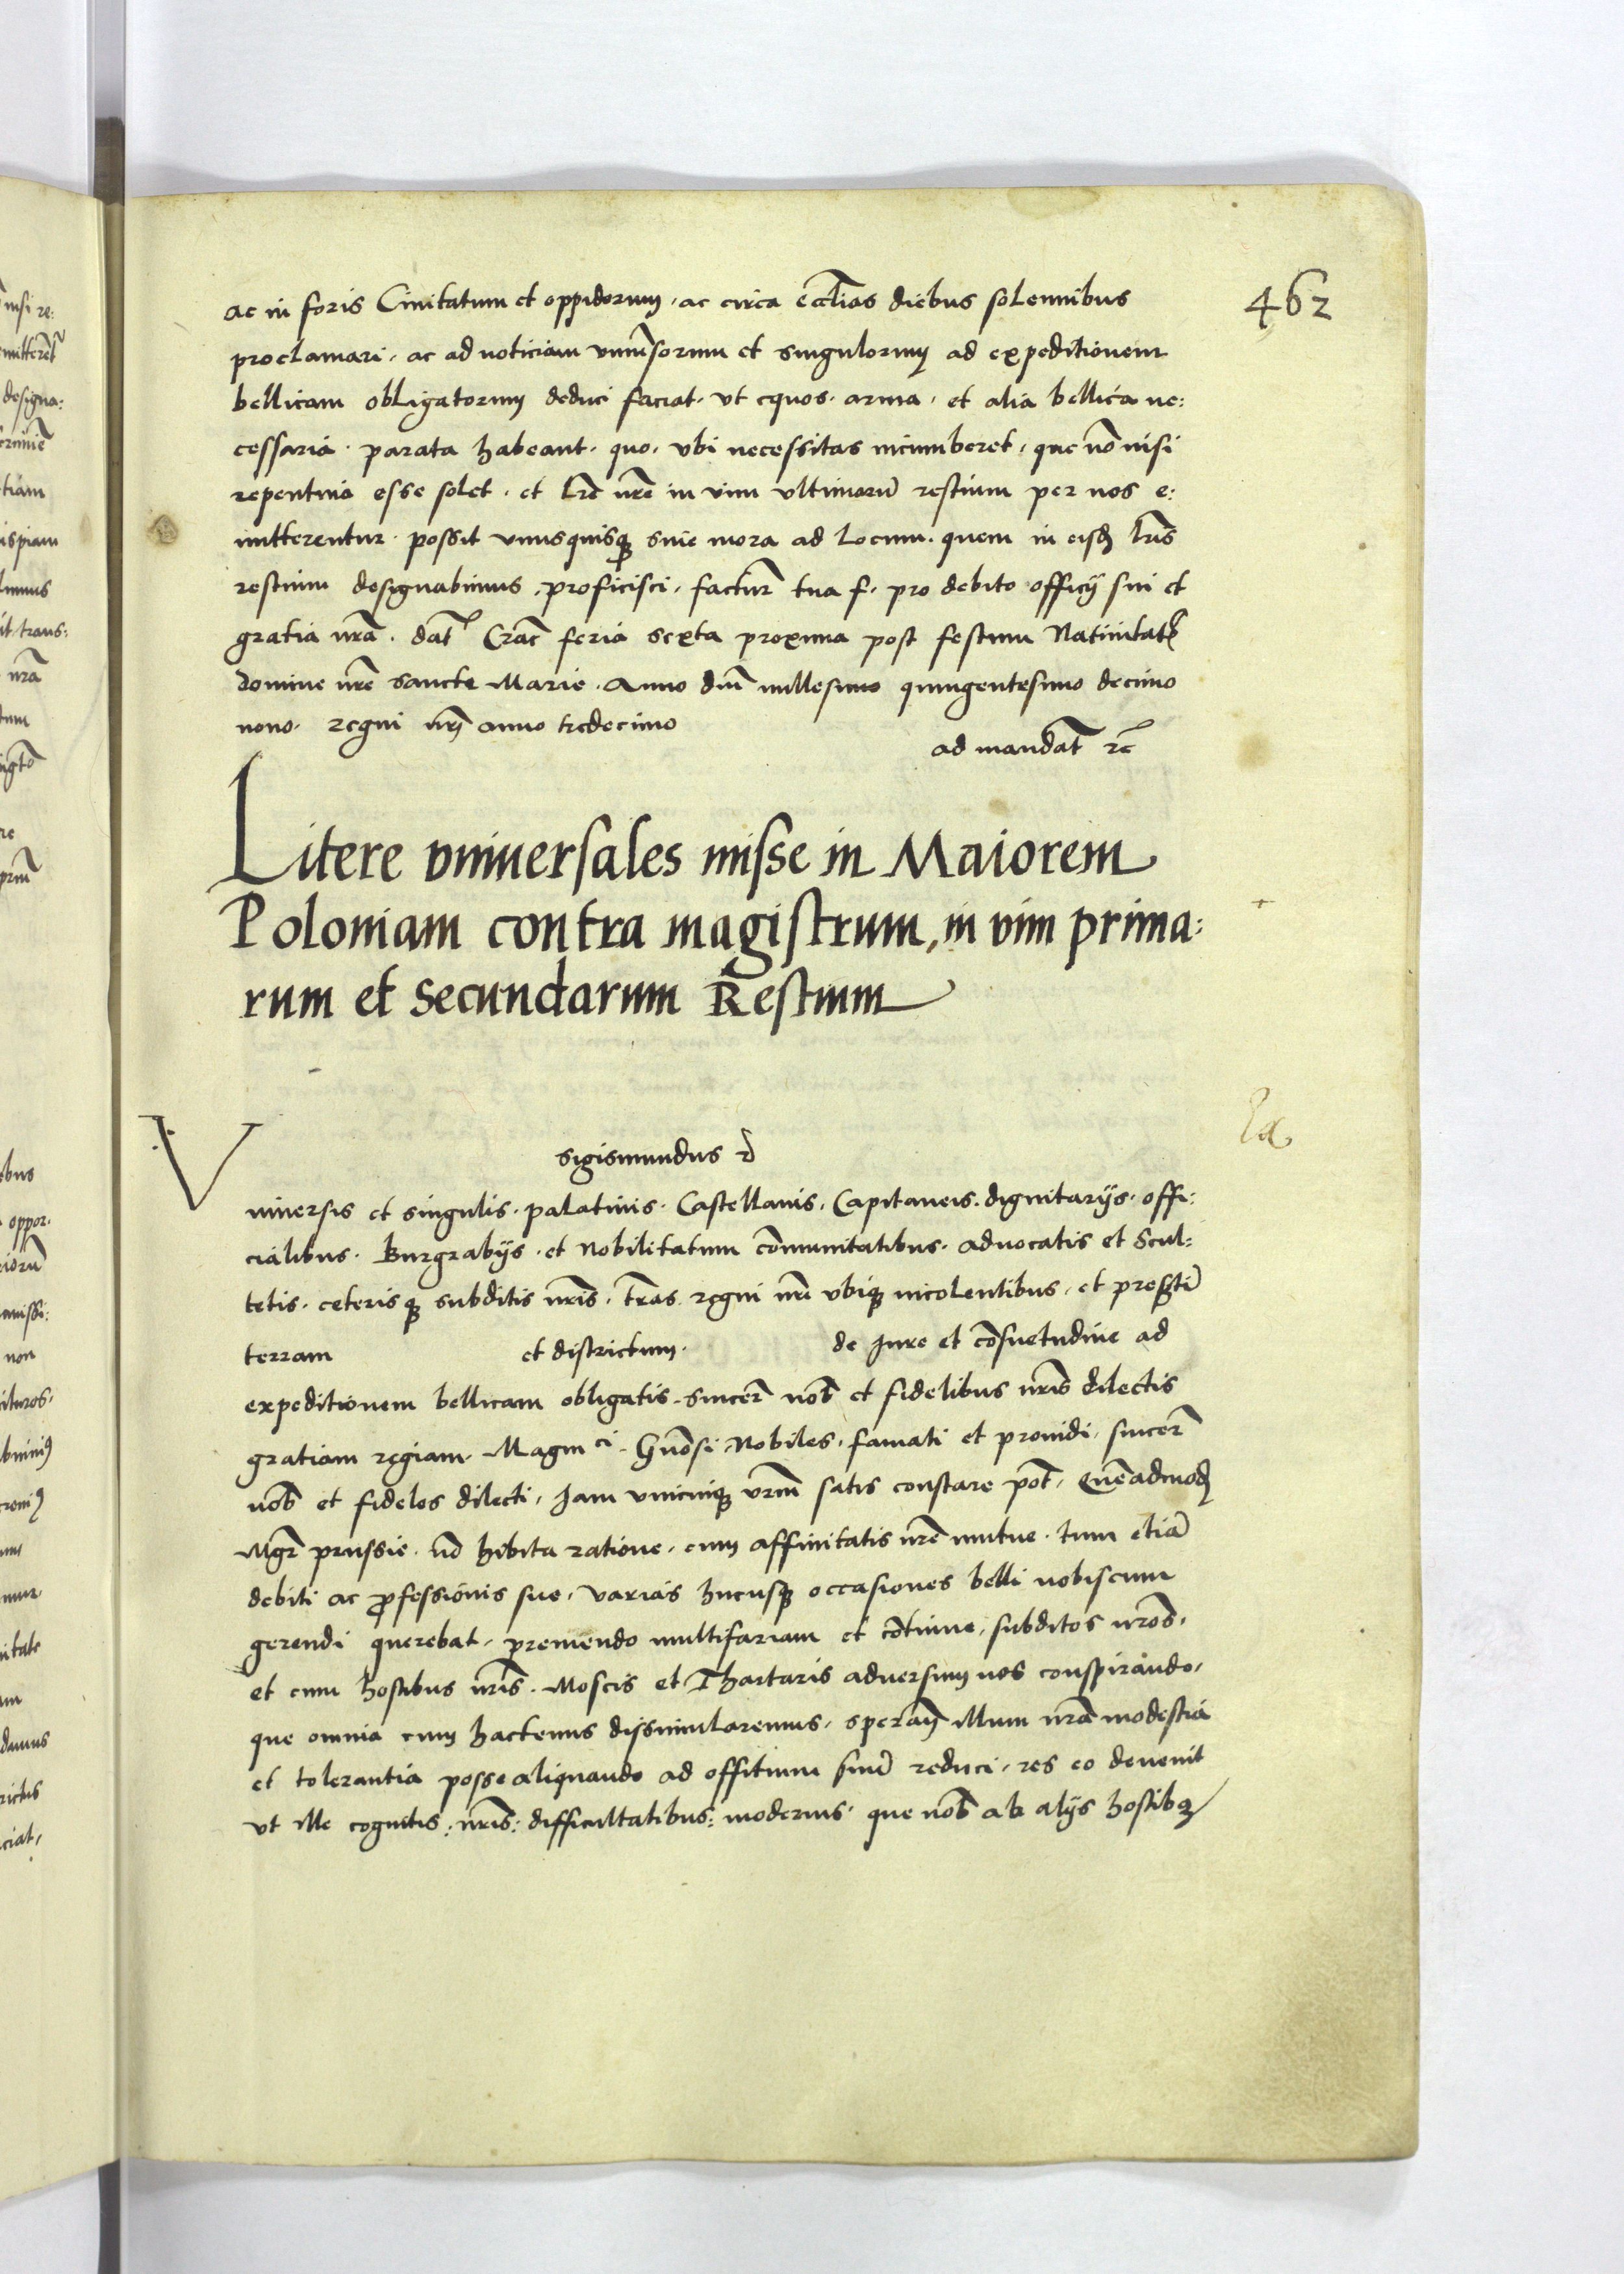 462
ac in foris Civitatum et oppidorum, ac circa eccl̃ias diebus solennibus
proclamari, ac ad noticiam uniṽsorum et singulorum ad expeditionem
bellicam obligatorum deduci faciat, vt equos, arma, et alia bellica ne:
cessaria, parata habeant, quo, vbi necessitas incumberet, que nõ nisi
repentina esse solet, et lr̃e nr̃e in vim vltimarũ restium per nos e:
mitterentur, possit vnusquisqꝫ sine mora ad locum, quem in eisdꝫ lr̃is
restium designabimus, proficisci, factur̃ tua f, pro debito officij sui et
gratia nr̃a. dat̃ Crac̃ feria sexta proxima post festum Nativitatꝭ
domine nr̃e sancte Marie. Anno dñi millesimo quingentesimo decimo
nono. regni nr̃i anno tredecimo
ad mandat̃ rẽ
Litere vniversales misse in Maiorem
Poloniam contra magistrum, in vim prima:
rum et secundarum Restium
sigismundus
Vniversis et singulis, palatinis, Castellanis, Capitaneis, dignitarijs, offi:
cialibus, Burgrabijs, et Nobilitatum cõmunitatibus, advocatis et Scul:
tetis, ceterisqꝫ subditis nr̃is, tr̃as regni nr̃i vbiqꝫ incolentibus, et presertĩ
terram et districtum. de Jure et cõsuetudine ad
expeditionem bellicam obligatis, sincer̃ nob̃ et fidelibus nr̃is dilectis
gratiam regiam. Magnici. Gñosi, Nobiles, famati et providi, sincer̃
nob̃ et fideles dilecti, Jam vnicuiqꝫ vr̃m satis constare pot̃, Quẽadmodꝫ
Mgr̃ prussie, nõ hibita ratione, cum affinitatis nr̃e mutue, tum etiã
debiti ac ꝓfessionis sue, varias hucusqꝫ occasiones belli nobiscum
gerendi querebat, premendo multifariam et cõtinue, subditos nr̃os,
et cum hostibus nr̃is, Moscis et Thartaris adversum nos conspirando,
que omnia cum hactenus dissimularemus, sperañ illum nr̃a modestia
et tolerantia posse aliquando ad offitium suũ reduci, res eo devenit
vt ille cognitis: nr̃is: difficultatibus: modernis, que nob̃ ab alijs hostibꝫ